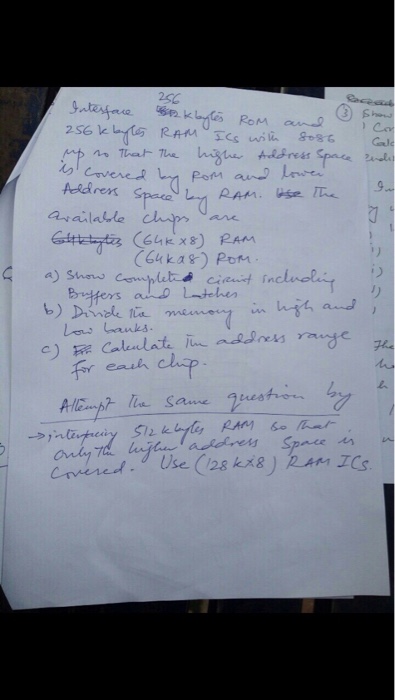 256
Interface k bytes ROM and
256 k bytes RAM ICs with 8086
μp so that the higher Address Space
is covered by ROM and lower
Address Space by RAM. The
available chips are
(64K x 8) RAM
(64K x 8) ROM.
a) Show completed circuit including
Buffers and Latches
b) Divide the memory in high and
Low banks.
c) Calculate the address range
for each chip.
Attempt the same question by
→ interfacing 512 k bytes RAM so that
only the higher address Space is
Covered. Use (128 K x 8) RAM ICs.
③ Show